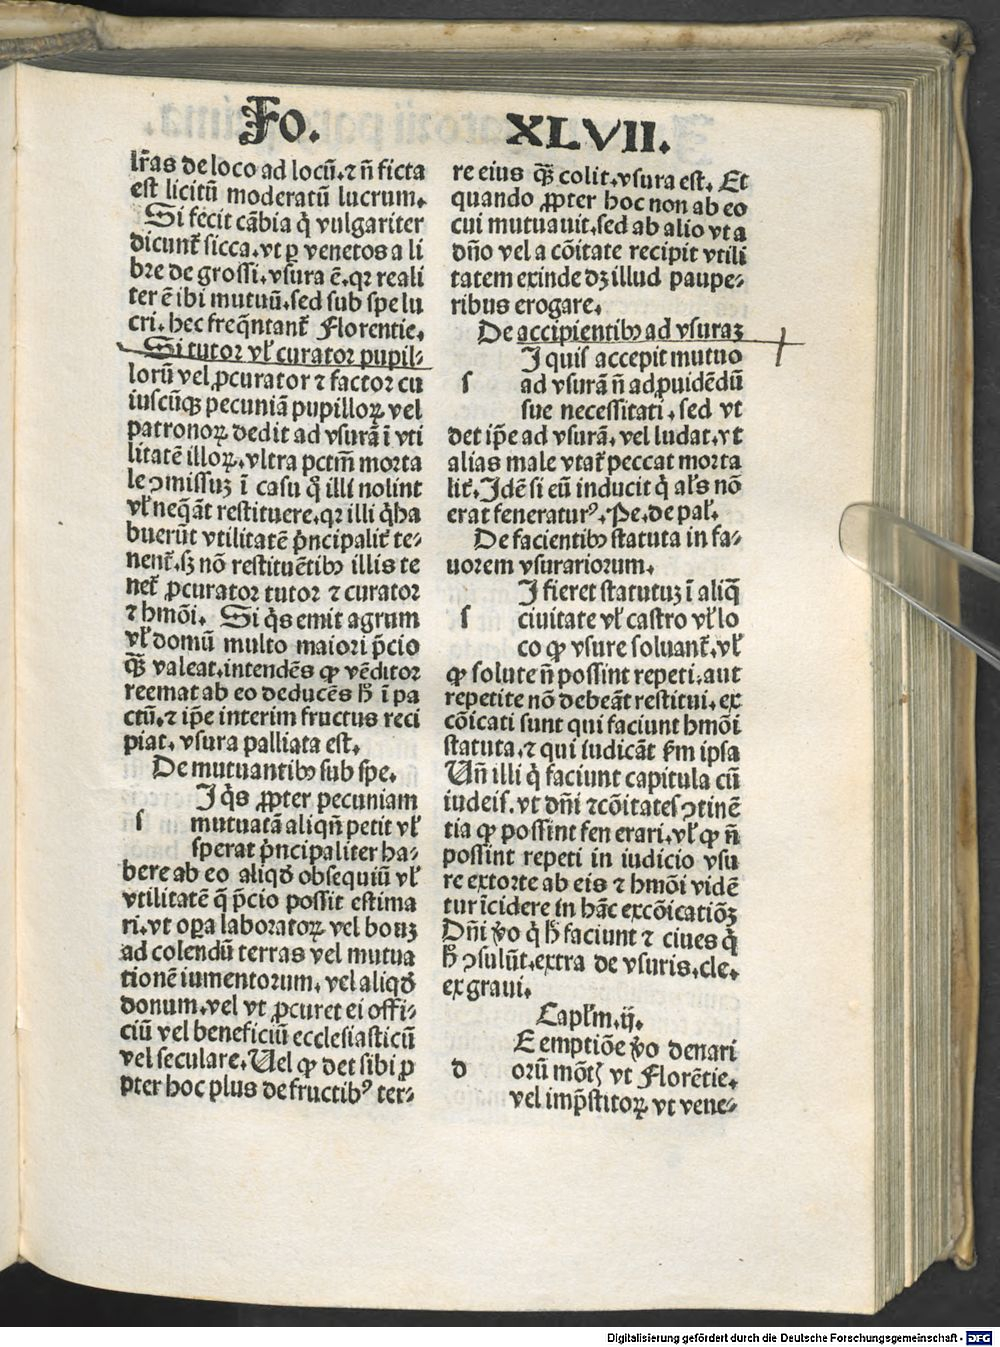 Fo. XLVII.
lr̃as de loco ad locũ. ⁊ ñ ficta
est licitũ moderatũ lucrum.
Si fecit cãbia q̃ vulgariter
dicunt̃ sicca. vt ꝑ venetos a li
bre de grossi. vsura ẽ. qꝛ reali
ter ẽ ibi mutuũ. sed sub spe lu
cri. hec freq̃ntant̃ Florentie.
Si tutor vl̃ curator pupil⸗
lorũ vel ꝓcurator ⁊ factor cu
iuscũqꝫ pecuniã pupilloꝝ vel
patronoꝝ dedit ad vsurã ĩ vti
litatẽ illoꝝ. vltra pctm̃ morta
le ꝯmissuꝫ ĩ casu q̊ illi nolint
vl̃ neq̃ãt restituere. qꝛ illi q̃ ha
buerũt vtilitatẽ p̃ncipalit̃ te⸗
nent̃. sꝫ nõ restituẽtibꝰ illis te
net̃ ꝓcurator tutor ⁊ curator
⁊ hmõi. Si q̃s emit agrum
vl̃ domũ multo maiori p̃cio
q̃ꝫ valeat. intendẽs ꝙ vẽditor
reemat ab eo deducẽs h̃ ĩ pa
ctũ. ⁊ ip̃e interim fructus reci
piat. vsura palliata est.
De mutuantibꝰ sub spe.
I q̃s ꝓpter pecuniam
s mutuatã aliqñ petit vl̃
sperat p̃ncipaliter ha⸗
bere ab eo aliqd̃ obsequiũ vl̃
vtilitatẽ q̃ p̃cio possit estima
ri. vt oꝑa laboratoꝝ vel bouꝫ
ad colendũ terras vel mutua
tionẽ iumentorum. vel aliqd̃
donum. vel vt ꝓcuret ei offi⸗
ciũ vel beneficiũ ecclesiasticũ
vel seculare. Uel ꝙ det sibi ꝓ
pter hoc plus de fructibꝰ ter⸗
re eius q̃ꝫ colit. vsura est. Et
quando ꝓpter hoc non ab eo
cui mutuauit. sed ab alio vt a
dño vel a cõitate recipit vtili
tatem exinde dꝫ illud paupe⸗
ribus erogare.
De accipientibꝰ ad vsuraꝫ
I quis accepit mutuo
s ad vsurã ñ ad ꝓuidẽdũ
sue necessitati. sed vt
det ip̃e ad vsurã. vel ludat. vt
alias male vtat̃ peccat morta
lit̃. Idẽ si eũ inducit q̃ al̃s nõ
erat feneraturꝰ. Pe. de pal̃.
De facientibꝰ statuta in fa⸗
uorem vsurariorum.
I fieret statutuꝫ ĩ aliq̃
s ciuitate vl̃ castro vl̃ lo
co ꝙ vsure soluant̃. vl̃
ꝙ solute ñ possint repeti. aut
repetite nõ debeãt restitui. ex
cõicati sunt qui faciunt hmõi
statuta. ⁊ qui iudicãt ẜm ipsa
Uñ illi q̃ faciunt capitula cũ
iudeis. vt dñi ⁊ cõitates ꝯtinẽ
tia ꝙ possint fenerari. vl̃ ꝙ ñ
possint repeti in iudicio vsu
re extorte ab eis ⁊ hmõi vidẽ
tur ĩcidere in hãc excõicatiõꝫ
Dñi ṽo q̃ h̃ faciunt ⁊ ciues q̃
h̃ ꝯsulũt. extra de vsuris. cle.
ex graui.
Capl̃m. ij.
E emptiõe ṽo denari
d orũ mõtꝭ vt Florẽtie.
vel imp̃stitoꝝ vt vene⸗
Digitalisierung gefördert durch die Deutsche Forschungsgemeinschaft - DFG